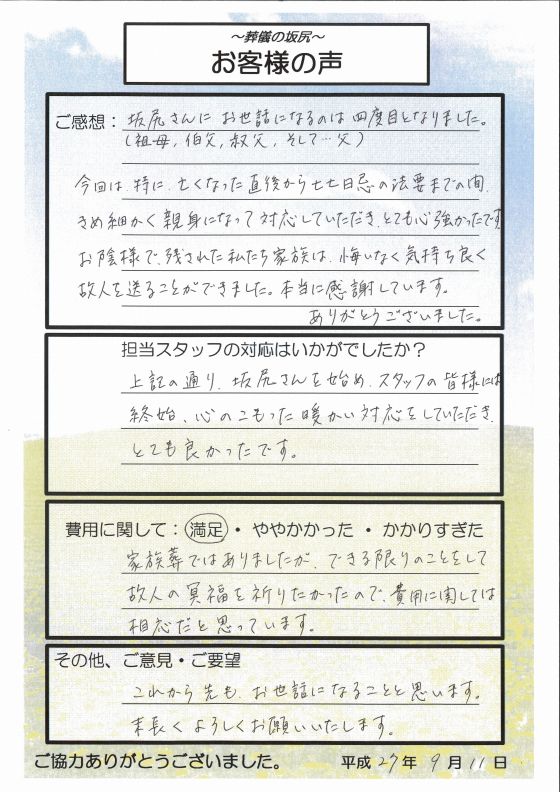 ～葬儀の坂尻～
お客様の声
ご感想：坂尻さんに お世話になるのは 四度目となりました。
(祖母，伯父，叔父，そして…父)
今回は 特に、亡くなった 直後から七七日忌の法要までの間、
きめ細かく 親身になって 対応していただき、とても心強かったです
お陰様で、残された私たち家族は、悔いなく気持ち良く
故人を送ることができました。本当に感謝しています。
ありがとうございました。
担当スタッフの対応はいかがでしたか？
上記の通り、坂尻さんを始め、スタッフの皆様には
終始、心のこもった暖かい対応をしていただき、
とても良かったです。
費用に関して：満足・ややかかった・かかりすぎた
家族葬ではありましたが、できる限りのことをして
故人の冥福を祈りたかったので、費用に関しては
相応だと思っています。
その他、ご意見・ご要望
これから先も、お世話になることと思います。
末長くよろしくお願いいたします。
ご協力ありがとうございました。 平成27年 9月11日